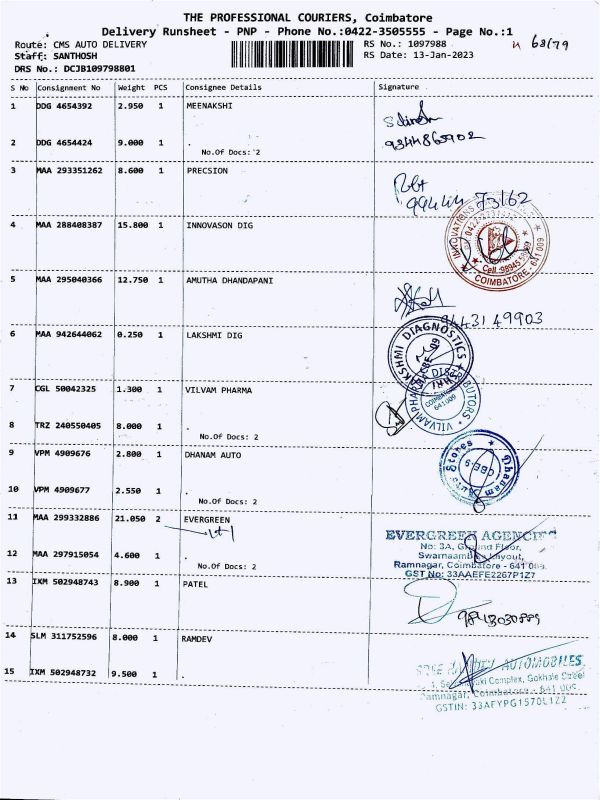 THE PROFESSIONAL COURIERS, Coimbatore
Delivery Runsheet - PNP - Phone No.:0422-3505555 - Page No.:1
Route: CMS AUTO DELIVERY RS No.: 1097988 68/79
Staff: SANTHOSH RS Date: 13-Jan-2023
DRS No.: DCJB109798801
S No Consignment No Weight PCS Consignee Details Signature
1 DDG 4654392 2.950 1 MEENAKSHI
2 DDG 4654424 9.000 1 . 9344865902
No.Of Docs: 2
3 MAA 293351262 8.600 1 PRECSION
99444 73162
4 MAA 288408387 15.800 1 INNOVASON DIG
COIMBATORE - 641 009
5 MAA 295040366 12.750 1 AMUTHA DHANDAPANI
9443149903
6 MAA 942644062 0.250 1 LAKSHMI DIG
LAKSHMI DIAGNOSTICS
7 CGL 50042325 1.300 1 VILVAM PHARMA
COIMBATORE 641009
8 TRZ 240550405 8.000 1 .
No.Of Docs: 2
9 VPM 4909676 2.800 1 DHANAM AUTO
Dhanam Auto Stores
CBE-9
10 VPM 4909677 2.550 1 .
No.Of Docs: 2
11 MAA 299332886 21.050 2 EVERGREEN
1+1
EVERGREEN AGENCIES
No: 3A, Ground Floor,
12 MAA 297915054 4.600 1 . Layout,
No.Of Docs: 2 Ramnagar, Coimbatore - 641 009.
GST No: 33AAEFE2267P1Z7
13 IXM 502948743 8.900 1 PATEL
9843030889
14 SLM 311752596 8.000 1 RAMDEV
AUTOMOBILES
15 IXM 502948732 9.500 1 . Complex, Gokhale Street
Ramnagar, Coimbatore - 641 009.
GSTIN: 33AFYPG1570L1Z2